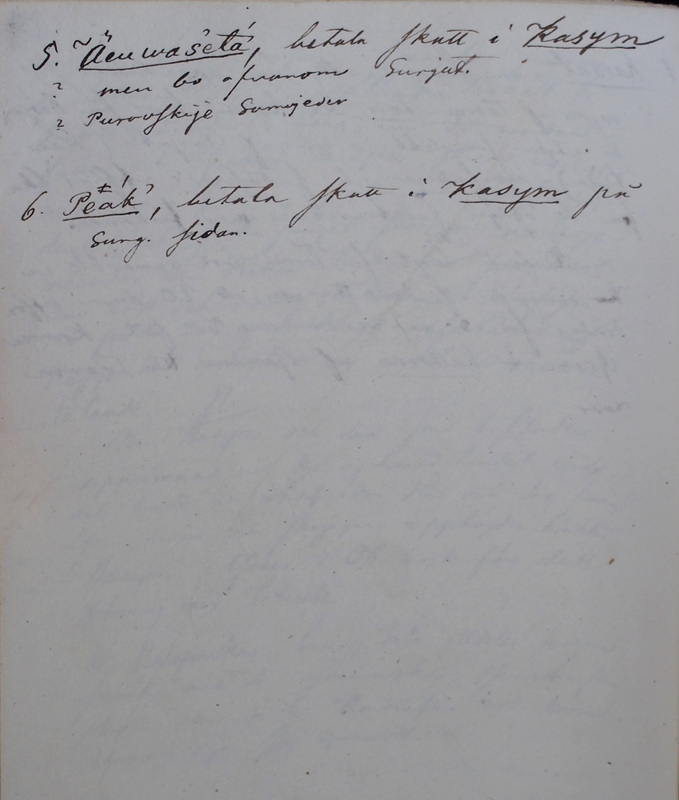 5. Äeuwašetá, betala skatt i Kasym
? men bo ofvanom Surgut.
? Purovskije Samojeder
6. Peák, betala skatt i Kasym på
Surg. sidan.